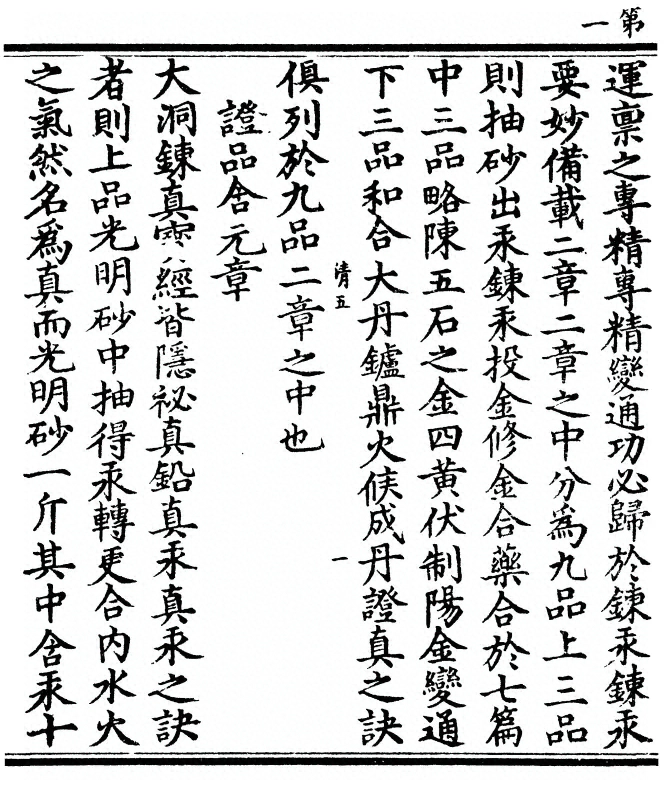 第一
運禀之專精專精變通功必歸於鍊汞鍊汞
要妙備載二章二章之中分爲九品上三品
則抽砂出汞鍊汞投金修金合藥合於七篇
中三品略陳五石之金四黄伏制陽金變通
下三品和合大丹鑪鼎火候成丹證真之訣
清五 一
俱列於九品二章之中也
證品含元章
大洞鍊真寳經皆隱祕真鉛真汞真汞之訣
者則上品光明砂中抽得汞轉更合内水火
之氣然名爲真而光明砂一斤其中含汞十